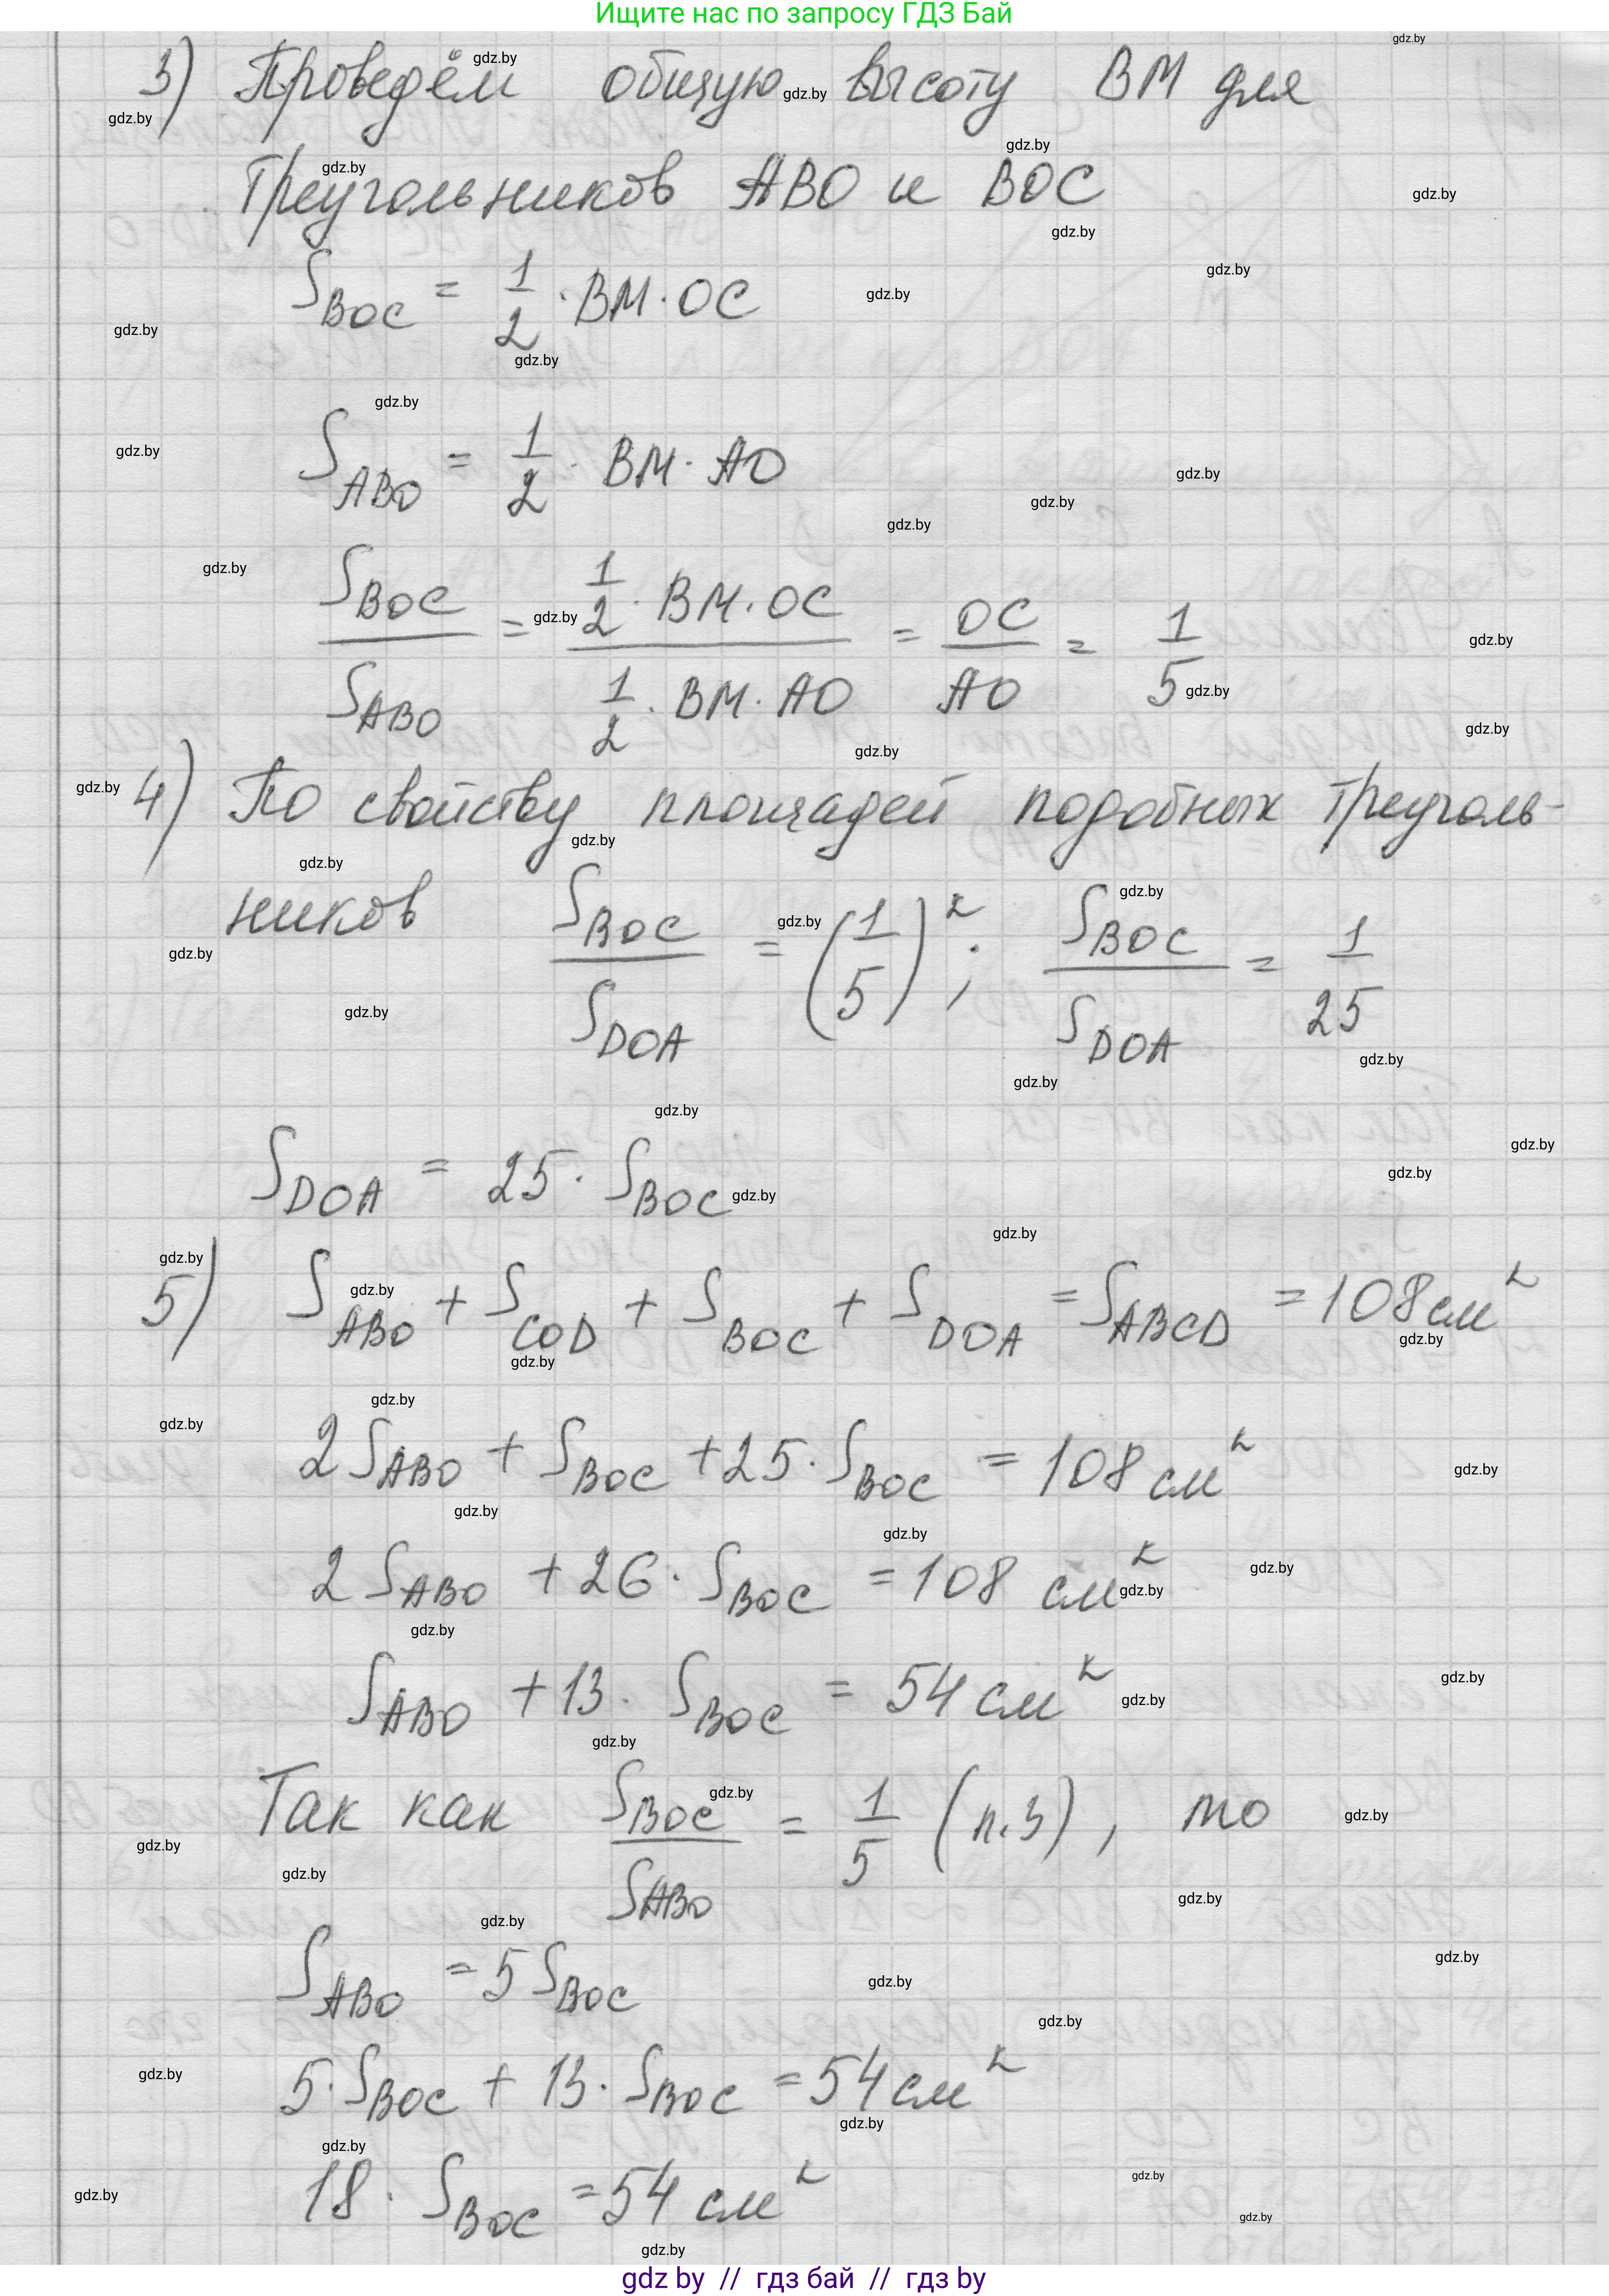 Ищите нас по запросу ГДЗ Бай
3) Проведём общую высоту ВМ для
треугольников АВО и ВОС
S_BOC = 1/2 · BM · OC
S_ABO = 1/2 · BM · AO
S_BOC / S_ABO = (1/2 · BM · OC) / (1/2 · BM · AO) = OC / AO = 1/5
4) По свойству площадей подобных треуголь-
ников S_BOC / S_DOA = (1/5)²; S_BOC / S_DOA = 1/25
S_DOA = 25 · S_BOC
5) S_ABO + S_COD + S_BOC + S_DOA = S_ABCD = 108 см²
2 S_ABO + S_BOC + 25 · S_BOC = 108 см²
2 S_ABO + 26 · S_BOC = 108 см²
S_ABO + 13 · S_BOC = 54 см²
Так как S_BOC / S_ABO = 1/5 (п.3), то
S_ABO = 5 S_BOC
5 · S_BOC + 13 · S_BOC = 54 см²
18 · S_BOC = 54 см²
gdz by // гдз бай // гдз by